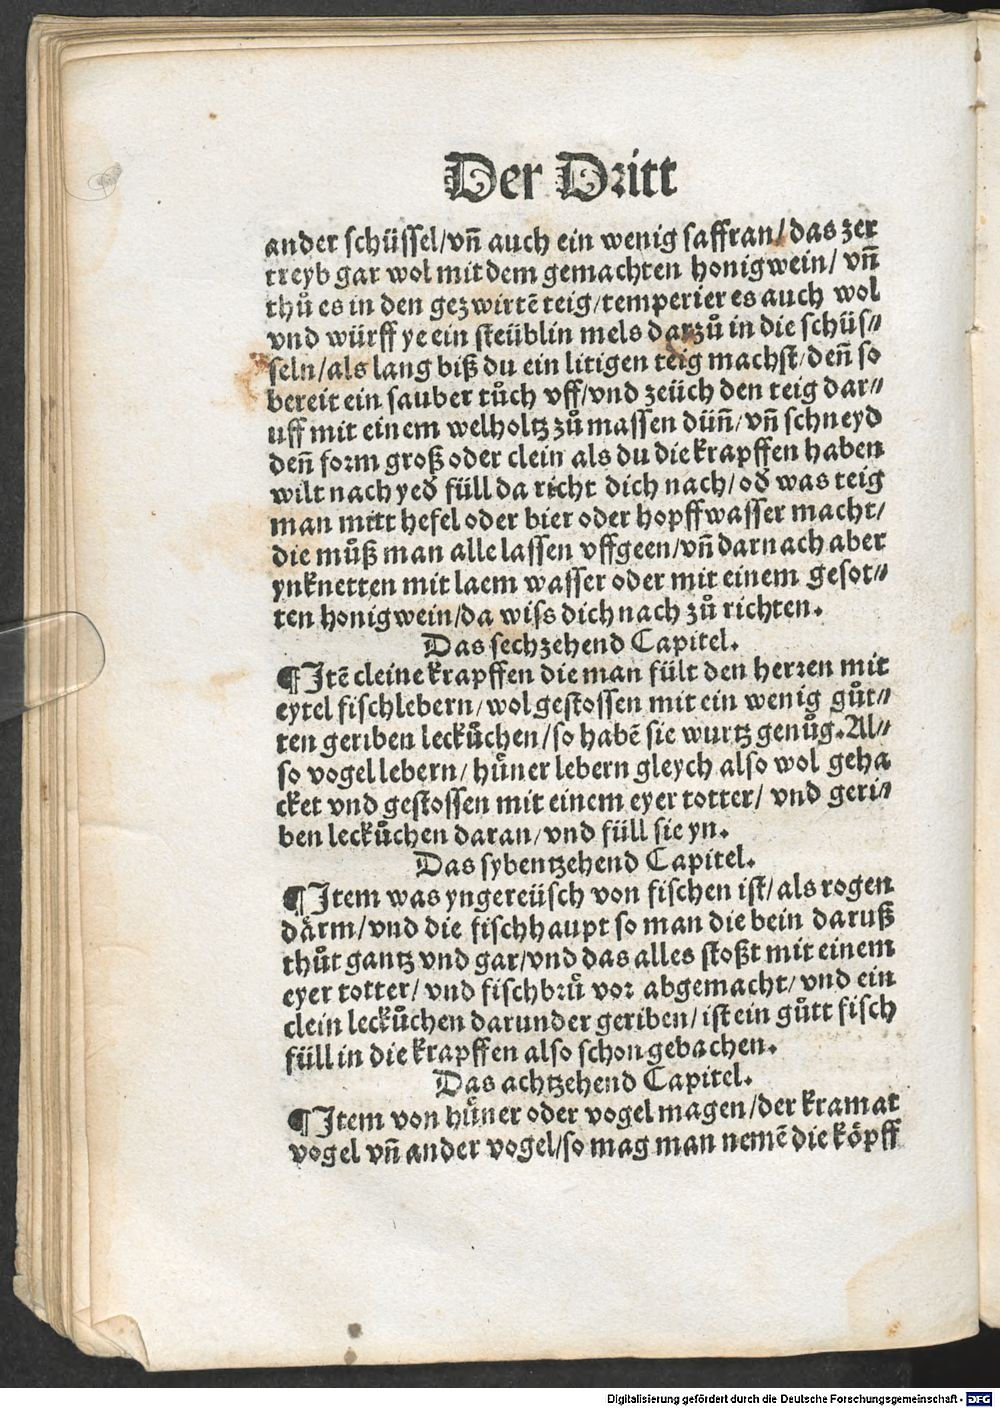 Der Dritt
ander schüssel/vñ auch ein wenig saffran/das zer
treyb gar wol mit dem gemachten honigwein/ vñ
thů es in den gezwirtē teig/temperier es auch wol
vnd würff ye ein steüblin mels darzů in die schüs⸗
seln/als lang biß du ein litigen teig machst/deñ so
bereit ein sauber tůch vff/vnd zeüch den teig dar⸗
uff mit einem welholtz zů massen düñ/vñ schneyd
deñ form groß oder clein als du die krapffen haben
wilt nach yed füll da richt dich nach/od was teig
man mitt hefel oder bier oder hopffwasser macht/
die můß man alle lassen vffgeen/vñ darnach aber
ynknetten mit laem wasser oder mit einem gesot⸗
ten honigwein/da wiss dich nach zů richten.
Das sechzehend Capitel.
¶Itē cleine krapffen die man fült den herren mit
eytel fischlebern/wol gestossen mit ein wenig gůt⸗
ten geriben leckůchen/so habē sie wurtz genůg.Al⸗
so vogel lebern/ hůner lebern gleych also wol geha
cket vnd gestossen mit einem eyer totter/ vnd geri⸗
ben leckůchen daran/vnd füll sie yn.
Das sybentzehend Capitel.
¶Item was yngereüsch von fischen ist/als rogen
därm/vnd die fischhaupt so man die bein daruß
thůt gantz vnd gar/vnd das alles stoßt mit einem
eyer totter/ vnd fischbrů vor abgemacht/vnd ein
clein leckůchen darunder geriben/ist ein gůtt fisch
füll in die krapffen also schon gebachen.
Das achtzehend Capitel.
¶Item von hůner oder vogel magen/der kramat
vogel vñ ander vogel/so mag man nemē die köpff
Digitalisierung gefördert durch die Deutsche Forschungsgemeinschaft - DFG